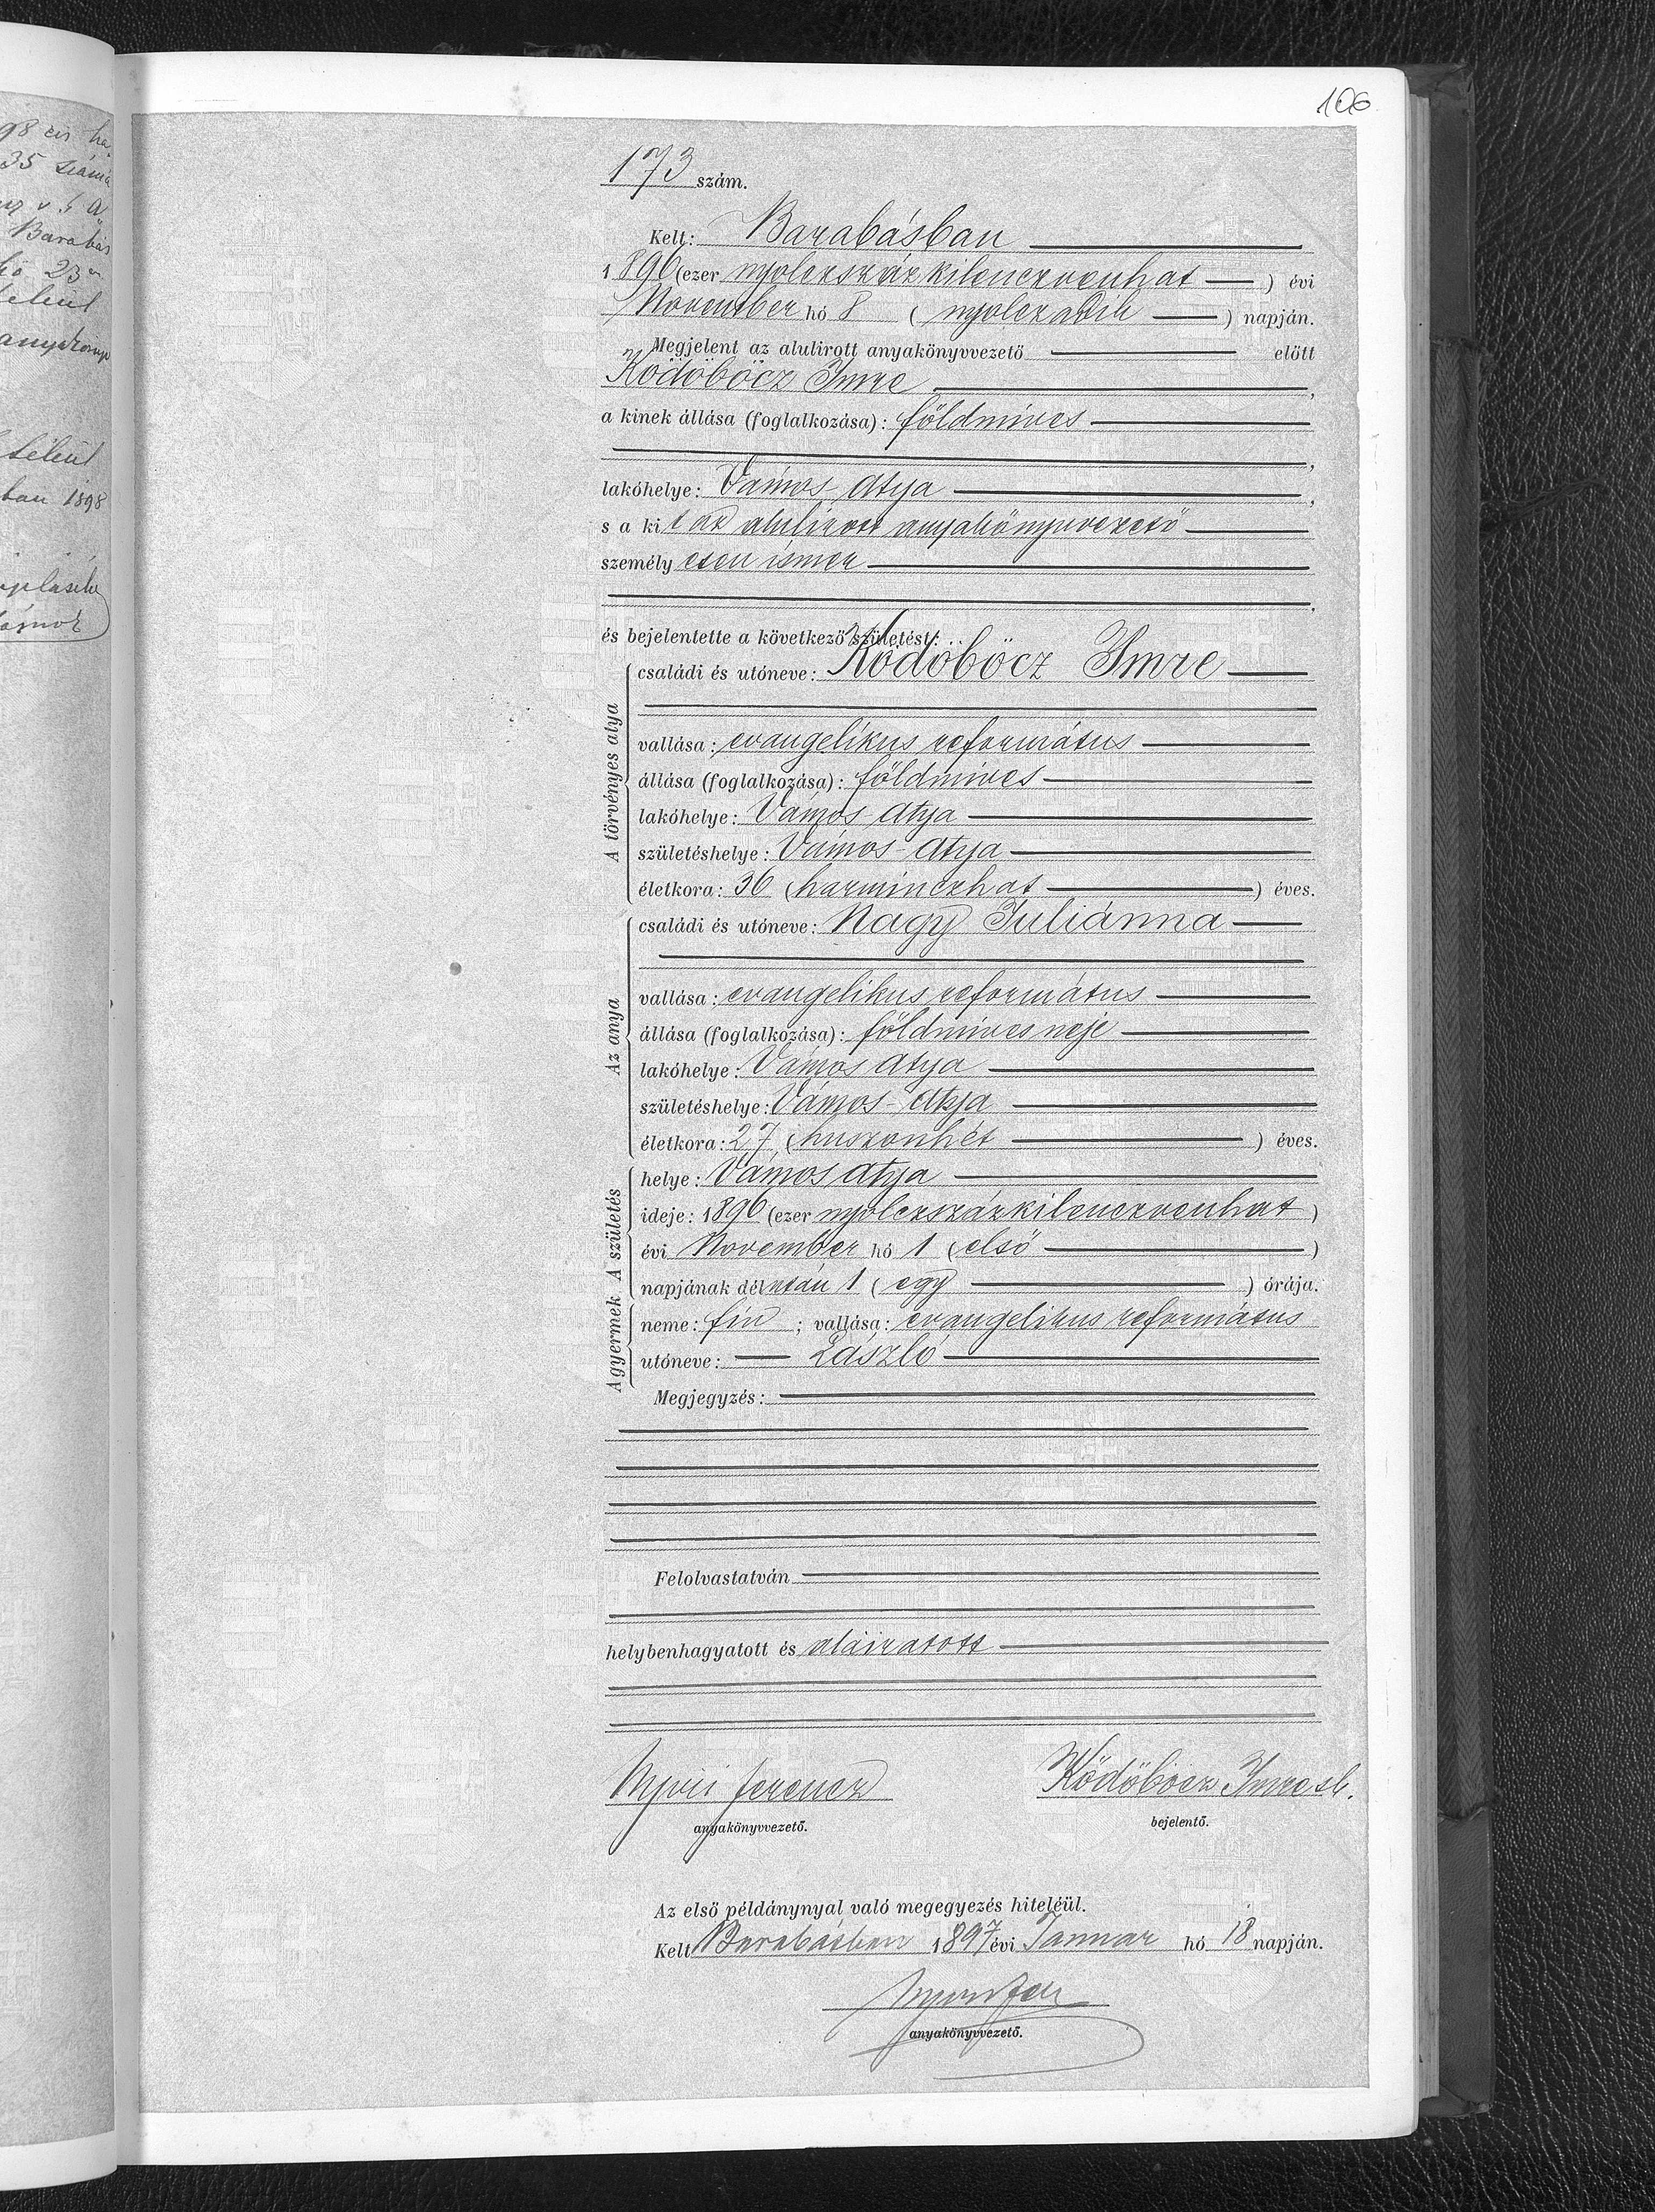 106
98 évi ha
35 szám
Barabás
hó 23
telent
1898
173 szám.
Kelt: Barabásban
1896 (ezer nyolczszáz kilenczvenhat ) évi
November hó 8 ( nyolczadik ) napján.
Megjelent az alulirott anyakönyvvezető előtt
Ködöböcz Imre ,
a kinek állása (foglalkozása): földmíves
,
lakóhelye: Vámos-Atya ,
s a kit az alulírott anyakönyvvezető
személyesen ismer
.
és bejelentette a következő születést:
A törvényes atya
családi és utóneve: Ködöböcz Imre
vallása: evangelikus református
állása (foglalkozása): földmíves
lakóhelye: Vámos-Atya
születéshelye: Vámos-Atya
életkora: 36 (harminczhat ) éves.
Az anya
családi és utóneve: Nagy Juliánna
vallása: evangelikus református
állása (foglalkozása): földmíves neje
lakóhelye: Vámos Atya
születéshelye: Vámos-Atya
életkora: 27 (huszonhét ) éves.
A születés
helye: Vámos Atya
ideje: 1896 (ezer nyolczszázkilenczvenhat )
évi November hó 1 (első )
napjának délután 1 ( egy ) órája.
A gyermek
neme: fiú ; vallása: evangelikus református
utóneve: László
Megjegyzés:
Felolvastatván
helybenhagyatott és aláiratott
Nyiri Ferencz
Ködöböcz Imre sk.
anyakönyvvezető.
bejelentő.
Az első példánynyal való megegyezés hiteléül.
Kelt Barabásban 1897 évi Januar hó 18 napján.
anyakönyvvezető.